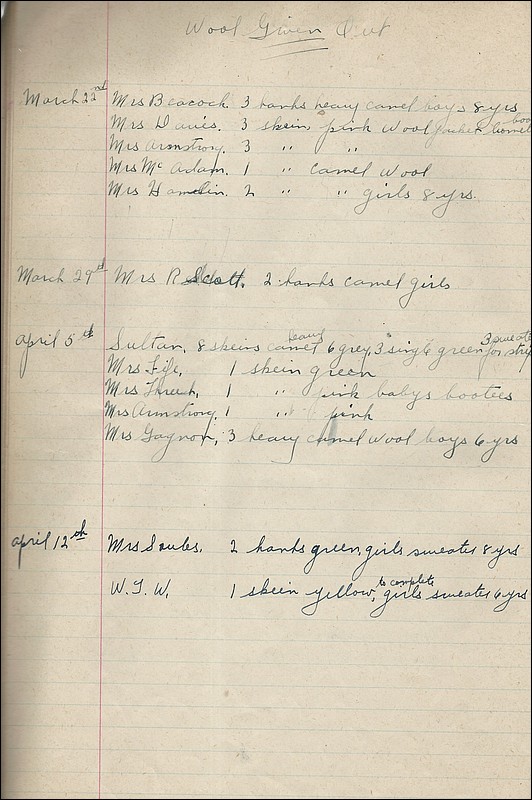 Wool Given Out
March 22nd Mrs Beacock. 3 hanks heavy camel boys 8 yrs
Mrs Davis. 3 skeins pink wool bonnet
Mrs Armstrong. 3 " "
Mrs McAdam. 1 " camel wool
Mrs Hamelin. 2 " " girls 8 yrs.
March 29th Mrs R Scott. 2 hanks camel girls
April 5th Sultan, 8 skeins heavy camel 6 grey, 3 single green 3 sweaters for
Mrs Fife, 1 skein green
Mrs 1 " pink babys bootees
Mrs Armstrong, 1 " pink
Mrs Gagnon, 3 heavy camel wool boys 6 yrs
April 12th Mrs Soules. 2 hanks green, girls sweater 8 yrs
W. J. W. 1 skein yellow, to complete girls sweater 6 yrs